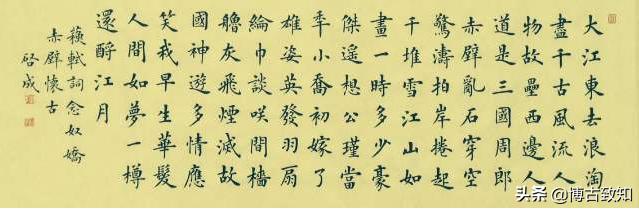 大江東去浪淘
盡千古風流人
物故壘西邊人
道是三國周郎
赤壁亂石穿空
驚濤拍岸捲起
千堆雪江山如
畫一時多少豪
傑遙想公瑾當
秊小喬初嫁了
雄姿英發羽扇
綸巾談咲間檣
艣灰飛煙滅故
國神遊多情應
笑我早生華髮
人間如夢一樽
還酹江月
蘓軾詞念奴嬌
赤壁懷古
啓成
头条 @博古致知